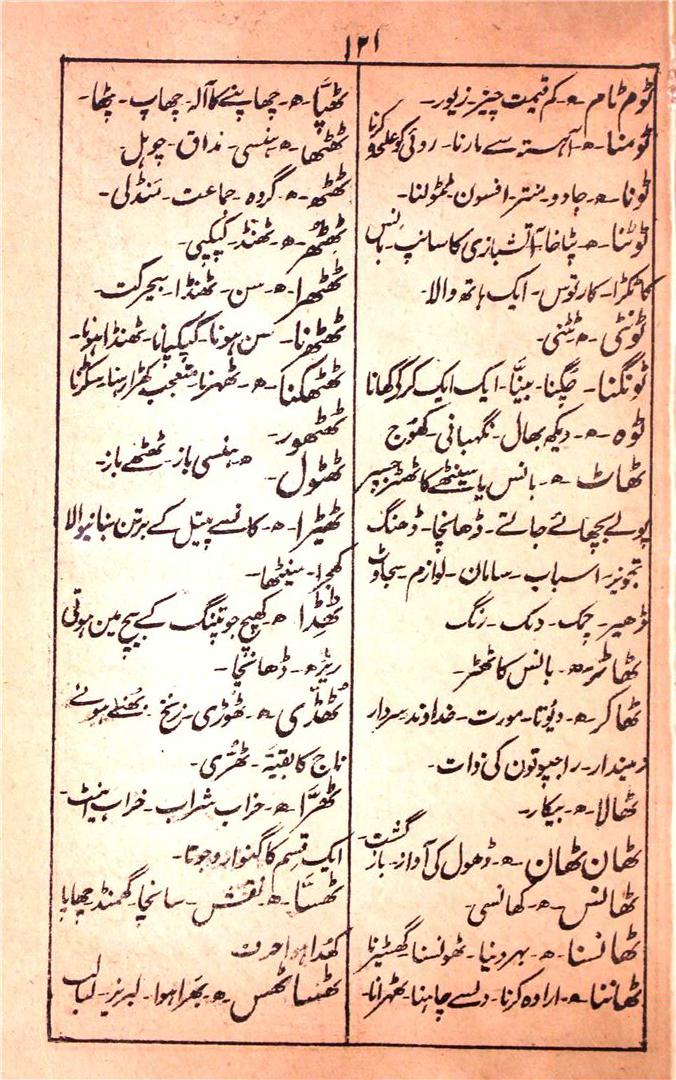 ۱۲۱
ٹوم ٹام - ھ - کم قیمت چیز - زیور -
ٹومنا - ھ - آہستہ سے مارنا - روئی کو علحدہ کرنا
ٹونا - ھ - جادو - منتر - افسون - ٹٹولنا -
ٹوٹنا - ھ - پٹاخا - آتشبازی کا سانپ - بانس
کا ٹکڑا - کارتوس - ایک ہاتھ والا -
ٹونٹی - ھ - ٹٹنی -
ٹونگنا - چگنا - بیننا - ایک ایک کر کر کھانا
ٹوہ - ھ - دیکھ بھال - نگہبانی - کھوج
ٹھاٹ - ھ - بانس یا سینٹھے کا ٹھٹر جسپر
پولے بچھائے جاتے - ڈھانچا - ڈھنگ
تجویز - اسباب - سامان - لوازم - سجاوٹ
ڈھیر - چمک - دمک - رنگ
ٹھاٹر - ھ - بانس کا ٹھٹر -
ٹھاکر - ھ - دیوتا - مورت - خداوند سردار
زمیندار - راجپوتون کی ذات -
ٹھالا - ھ - بیکار -
ٹھان ٹھان - ھ - ڈھول کی آواز - باز گشت -
ٹھانس - ھ - کھانسی -
ٹھانسنا - ھ - بھر دینا - ٹھونسنا گھسیڑنا
ٹھاننا - ھ - ارادہ کرنا - دلسے چاہنا - ٹھہرانا -
ٹھپا - ھ - چھاپنے کا آلہ - چھاپ - پٹھا -
ٹھٹھا - ھ - ہنسی - مذاق - چوہل -
ٹھٹھ - ھ - گروہ - جماعت - منڈلی -
ٹھٹھر - ھ - ٹھنڈ - کپکپی -
ٹھٹھرا - ھ - سن - ٹھنڈا - بیحرکت -
ٹھٹھرنا - سن ہونا - کپکپانا - ٹھنڈا ہونا -
ٹھٹھکنا - ھ - ٹھہرنا - متعجب کھڑا رہنا - سکڑنا
ٹھٹھور -
ٹھٹول - ھ - ہنسی باز - ٹھٹھے باز -
ٹھٹیرا - ھ - کانسے پیتل کے برتن بنانیوالا
کھجرا - سینٹھا -
ٹھڈا - ھ - کھپچ جو پتنگ کے بیچ مین ہوتی
ریڑھ - ڈھانچا -
ٹھڈی - ھ - ٹھوڑی - زنخ - بھنے ہوئے
ناج کا بقیہ - ٹھڑی -
ٹھرا - ھ - خراب شراب - خراب اینٹ -
ایک قسم کا گنوارو جوتا -
ٹھسا - ھ - نقش - سانچا - گھمنڈ - چھاپا
کھدا ہوا حرف
ٹھسا ٹھس - ھ - بھرا ہوا - لبریز - لبالب